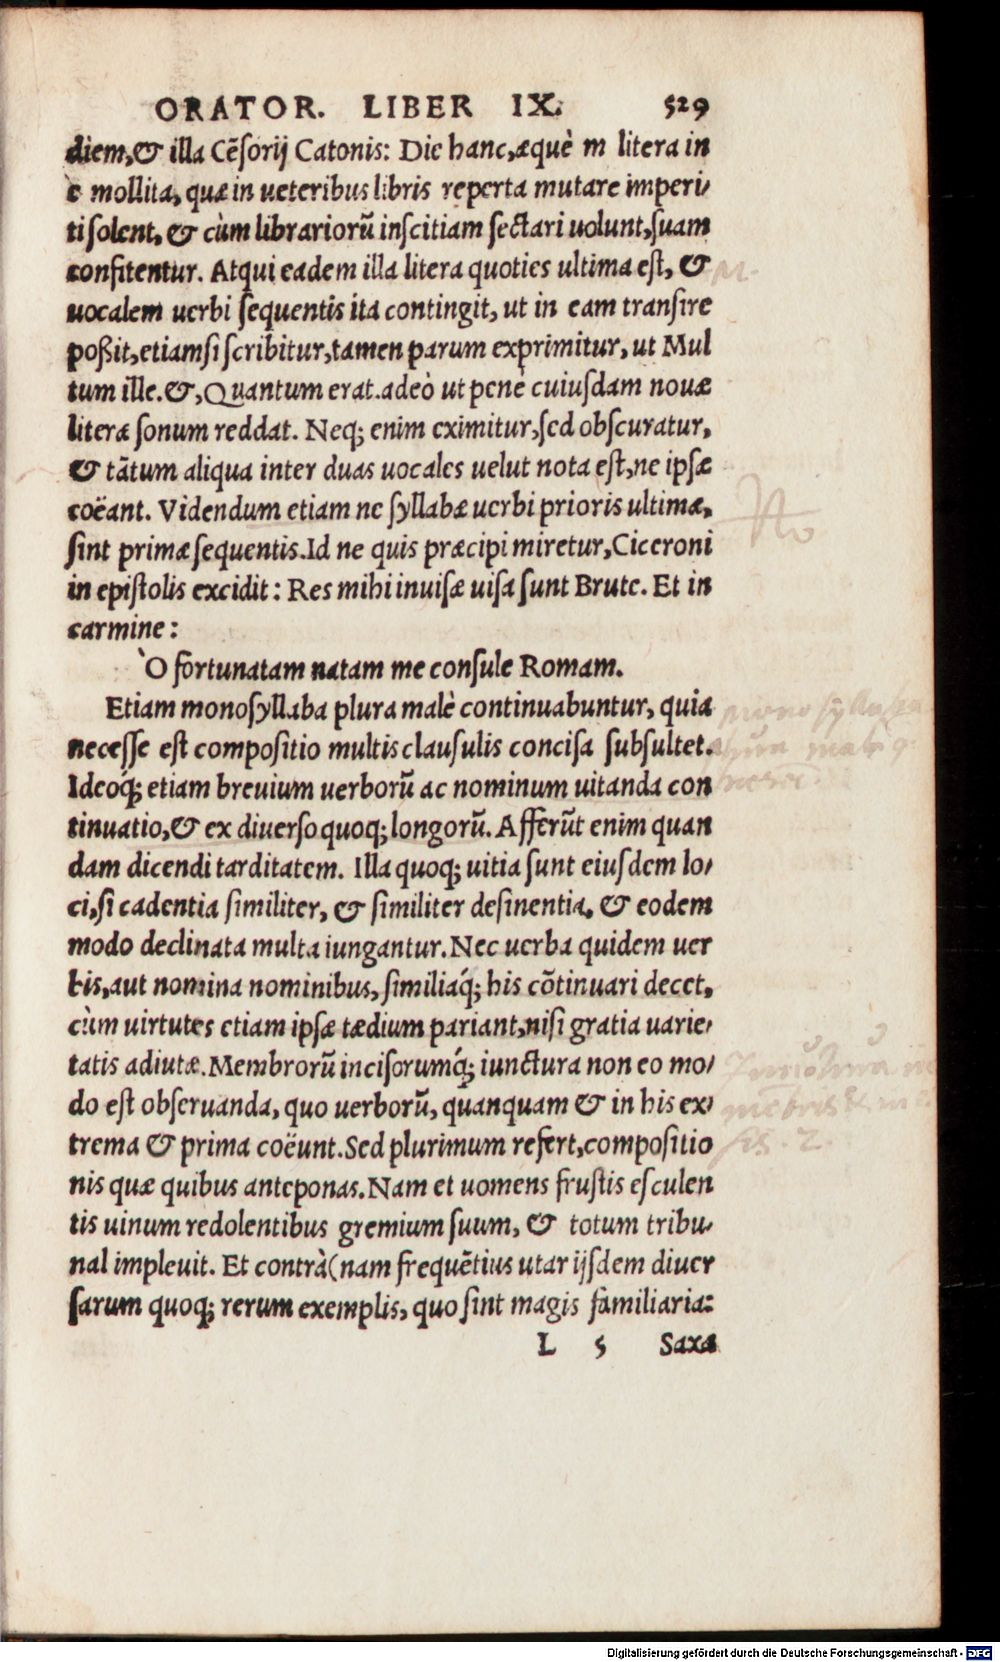 ORATOR. LIBER IX. 529
diem,& illa Cẽsorij Catonis: Die hanc,æquè m litera in
è mollita, quæ in ueteribus libris reperta mutare imperi/
ti solent, & cùm librariorũ inscitiam sectari uolunt,suam
confitentur. Atqui eadem illa litera quoties ultima est, &
uocalem uerbi sequentis ita contingit, ut in eam transire
poßit,etiamsi scribitur,tamen parum exprimitur, ut Mul
tum ille.&,Quantum erat.adeò ut penè cuiusdam nouæ
literæ sonum reddat. Neq; enim eximitur,sed obscuratur,
& tãtum aliqua inter duas uocales uelut nota est,ne ipsæ
coëant. Videndum etiam ne syllabæ uerbi prioris ultimæ,
sint primæ sequentis.Id ne quis præcipi miretur,Ciceroni
in epistolis excidit: Res mihi inuisæ uisa sunt Brute. Et in
carmine:
`O fortunatam natam me consule Romam.
Etiam monosyllaba plura malè continuabuntur, quia
necesse est compositio multis clausulis concisa subsultet.
Ideoq́; etiam breuium uerborũ ac nominum uitanda con
tinuatio,& ex diuerso quoq; longorũ. Afferũt enim quan
dam dicendi tarditatem. Illa quoq; uitia sunt eiusdem lo/
ci,si cadentia similiter, & similiter desinentia, & eodem
modo declinata multa iungantur. Nec uerba quidem uer
bis,aut nomina nominibus, similiaq́; his cõtinuari decet,
cùm uirtutes etiam ipsæ tædium pariant,nisi gratia uarie/
tatis adiutæ. Membrorũ incisorumq́; iunctura non eo mo/
do est obseruanda, quo uerborũ, quanquam & in his ex/
trema & prima coëunt. Sed plurimum refert,compositio
nis quæ quibus anteponas. Nam et uomens frustis esculen
tis uinum redolentibus gremium suum, & totum tribu/
nal impleuit. Et contrà(nam frequẽtius utar ijsdem diuer
sarum quoq; rerum exemplis, quo sint magis familiaria:
L 5 Saxa
M.
No
Digitalisierung gefördert durch die Deutsche Forschungsgemeinschaft - DFG